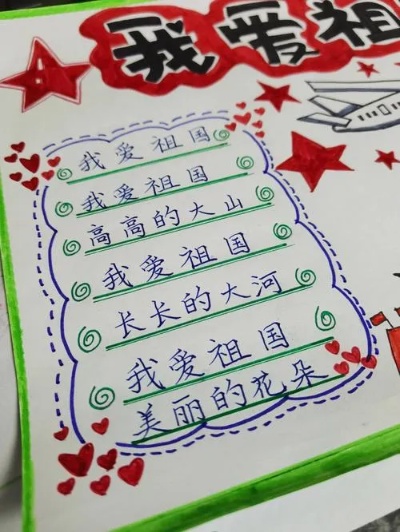 我爱祖
我爱祖国
我爱祖国
高高的大山
我爱祖国
长长的大河
我爱祖国
美丽的花朵